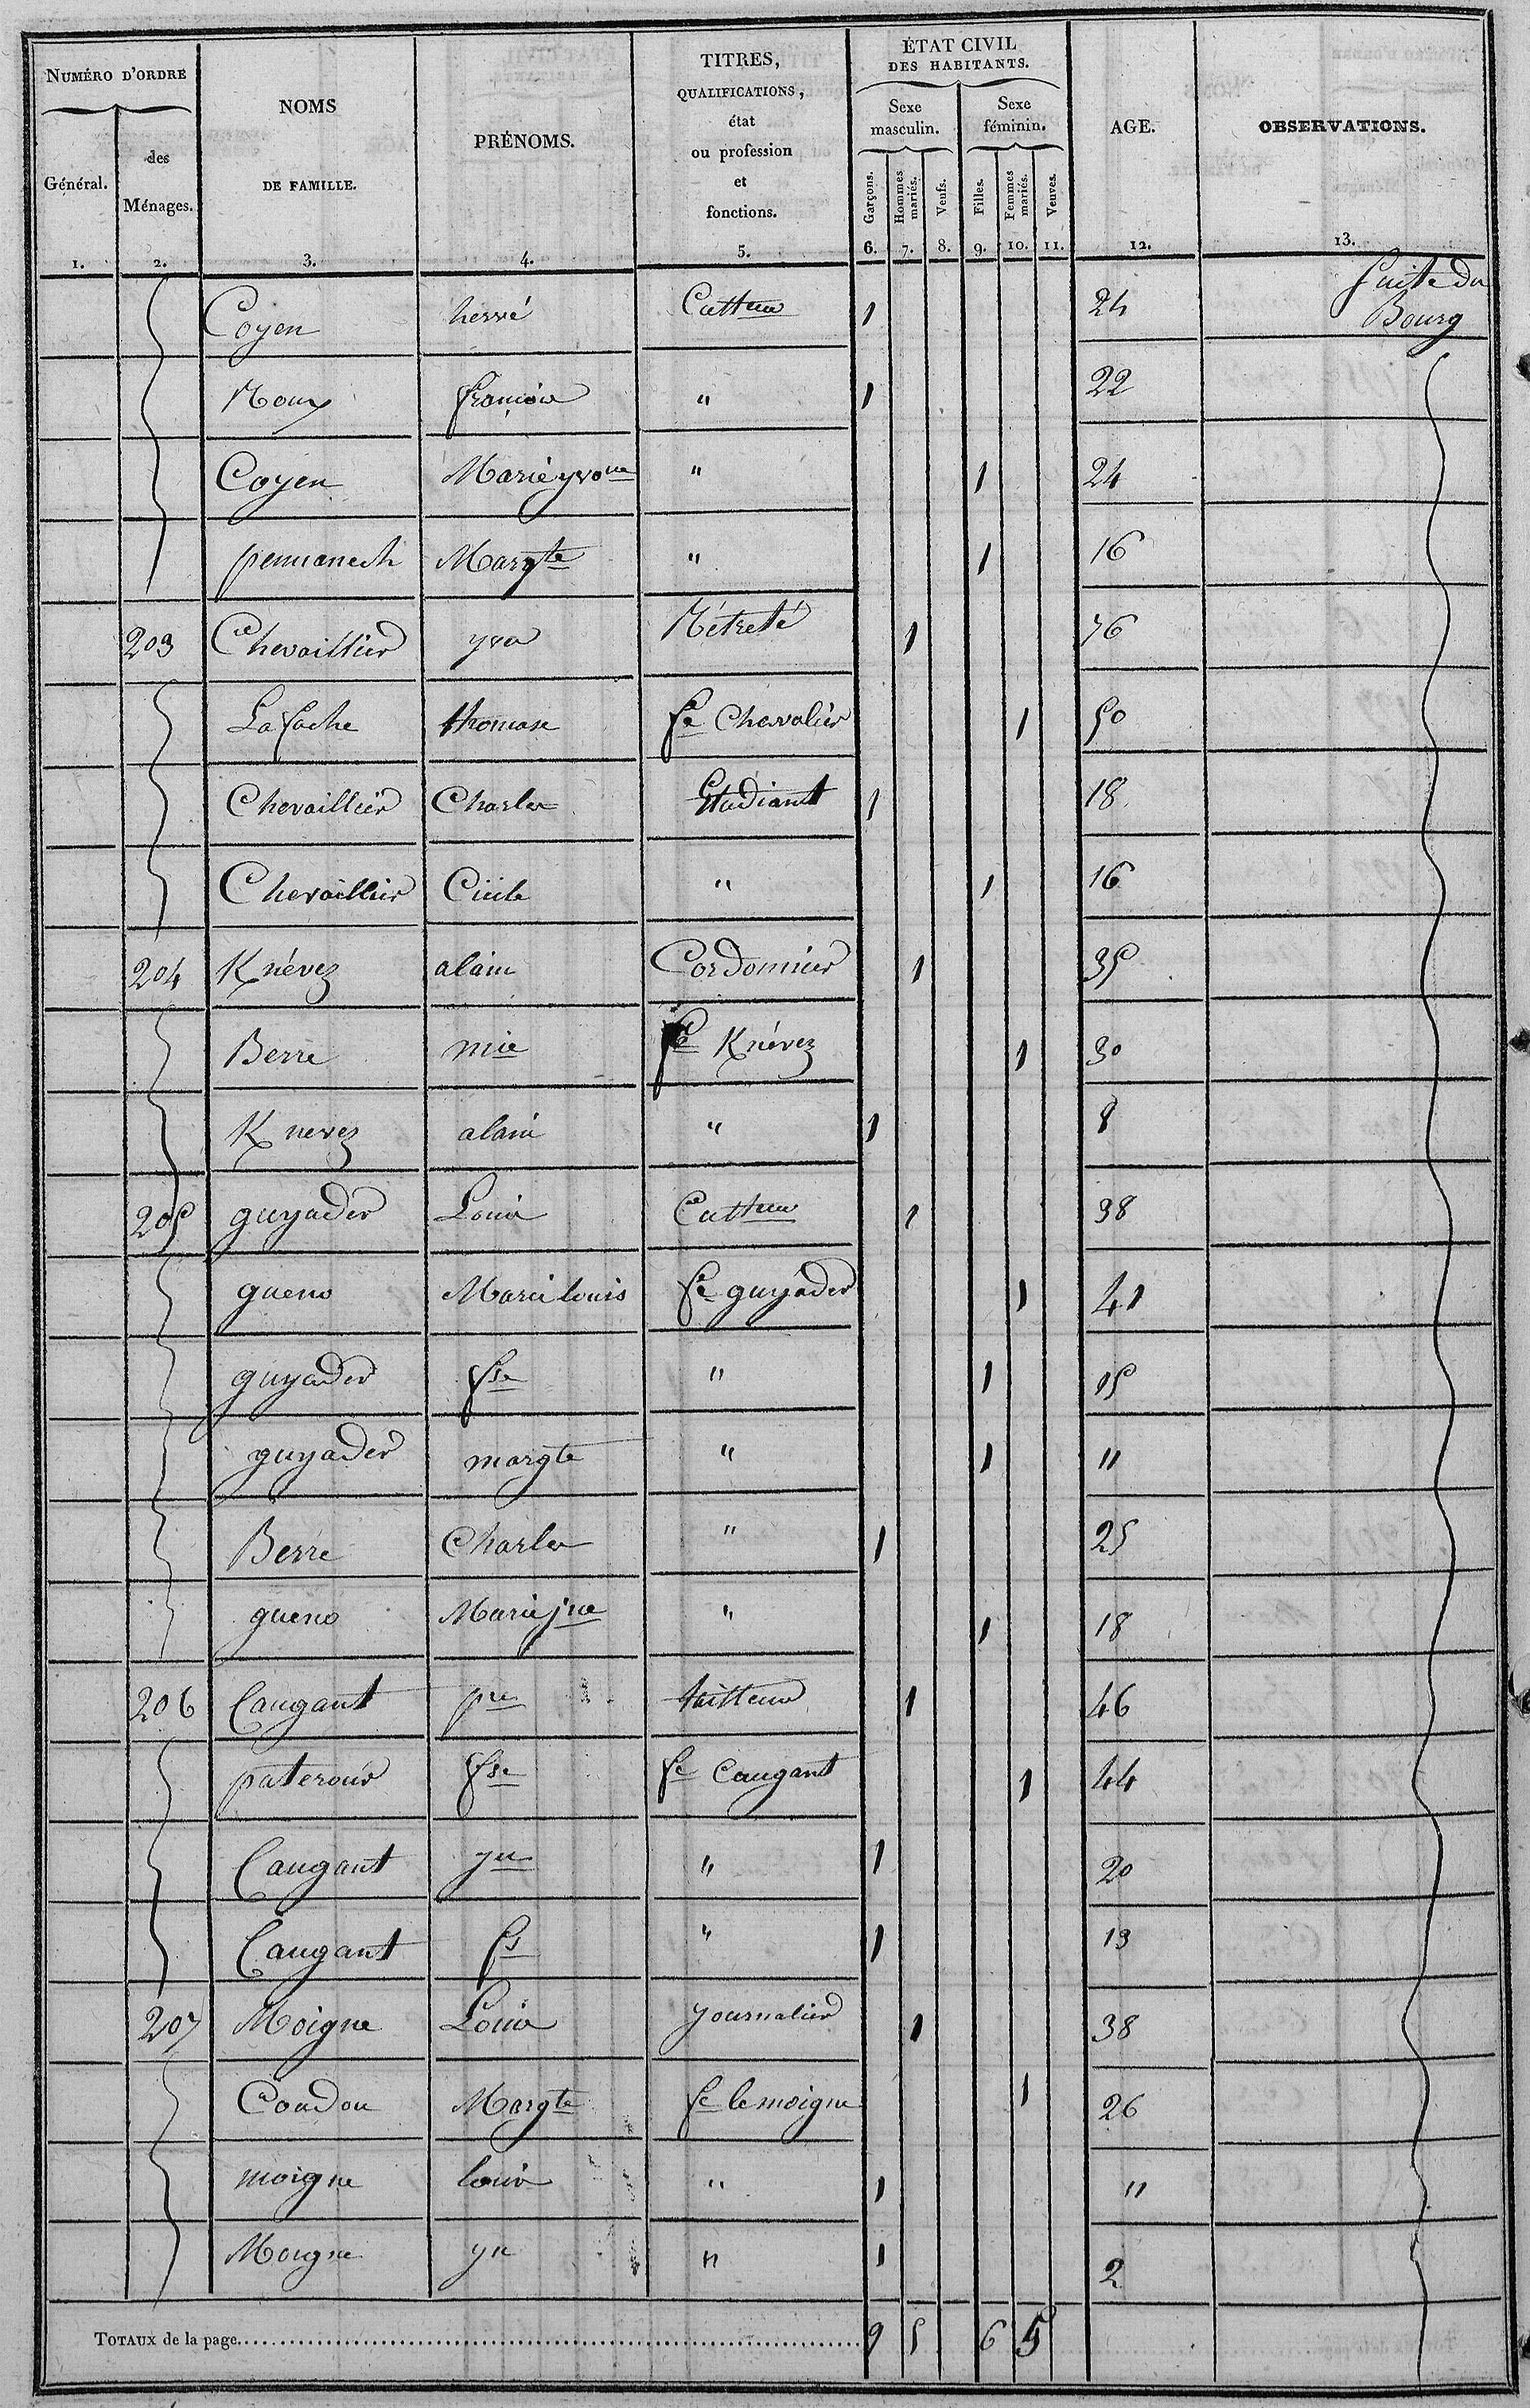 NUMÉRO D'ORDRE | NOMS DE FAMILLE. | PRÉNOMS. | TITRES, QUALIFICATIONS, état ou profession et fonctions. | ÉTAT CIVIL DES HABITANTS. | AGE. | OBSERVATIONS.
Général. | des Ménages. | Sexe masculin. | Sexe féminin.
Garçons. | Hommes mariés. | Veufs. | Filles. | Femmes mariés. | Veuves.
1. | 2. | 3. | 4. | 5. | 6. | 7. | 8. | 9. | 10. | 11. | 12. | 13.
Coyen | hervé | Cultteur | 1 | 24 | Suite du Bourg
Roux | françois | " | 1 | 22
Coyen | Marie yvonne | " | 1 | 24
pennanech | Margte | " | 1 | 16
203 | Chevaillier | yves | Rétreté | 1 | 76
La fache | thomase | fe Chevalier | 1 | 50
Chevaillier | Charles | Etudiant | 1 | 18
Chevaillier | Cécile | " | 1 | 16
204 | Knévez | alain | Cordonnier | 1 | 35
Berre | mie | fe Knévez | 1 | 30
Knevez | alain | " | 1 | 8
205 | guyader | Louis | Cultteur | 1 | 38
gueno | Marie louis | fe guyader | 1 | 41
guyader | fse | " | 1 | 15
guyader | margte | " | 1 | 11
Berre | Charles | " | 1 | 25
gueno | Marie jne | " | 1 | 18
206 | Caugant | pre | tailleur | 1 | 46
paterour | fse | fe Caugant | 1 | 44
Caugant | yu | " | 1 | 20
Caugant | fs | " | 1 | 13
207 | Moigne | Louis | journalier | 1 | 38
Coudon | Margte | fe le moigne | 1 | 26
moigne | louis | " | 1 | 11
Moigne | yu | " | 1 | 2
TOTAUX de la page | 9 | 5 | 6 | 5